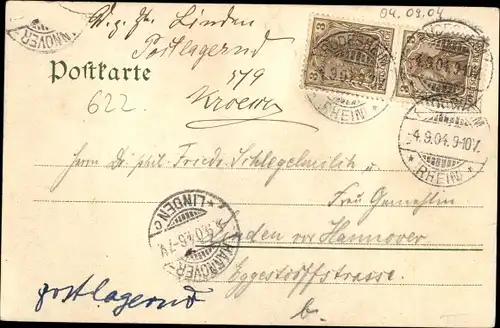 04.09.04
z. Zt. Linden
Postlagernd
579
Postkarte
622
3 3
RÜDESHEIM
4.9.04.9-10V.
* (RHEIN) *
HANNOVER
Herrn Dr. phil. Friedr. Schlegelmilch u.
Frau Gemahlin
Linden vor Hannover
Eggestorffstrasse
b.
HANNOVER-
* LINDEN *
postlagernd